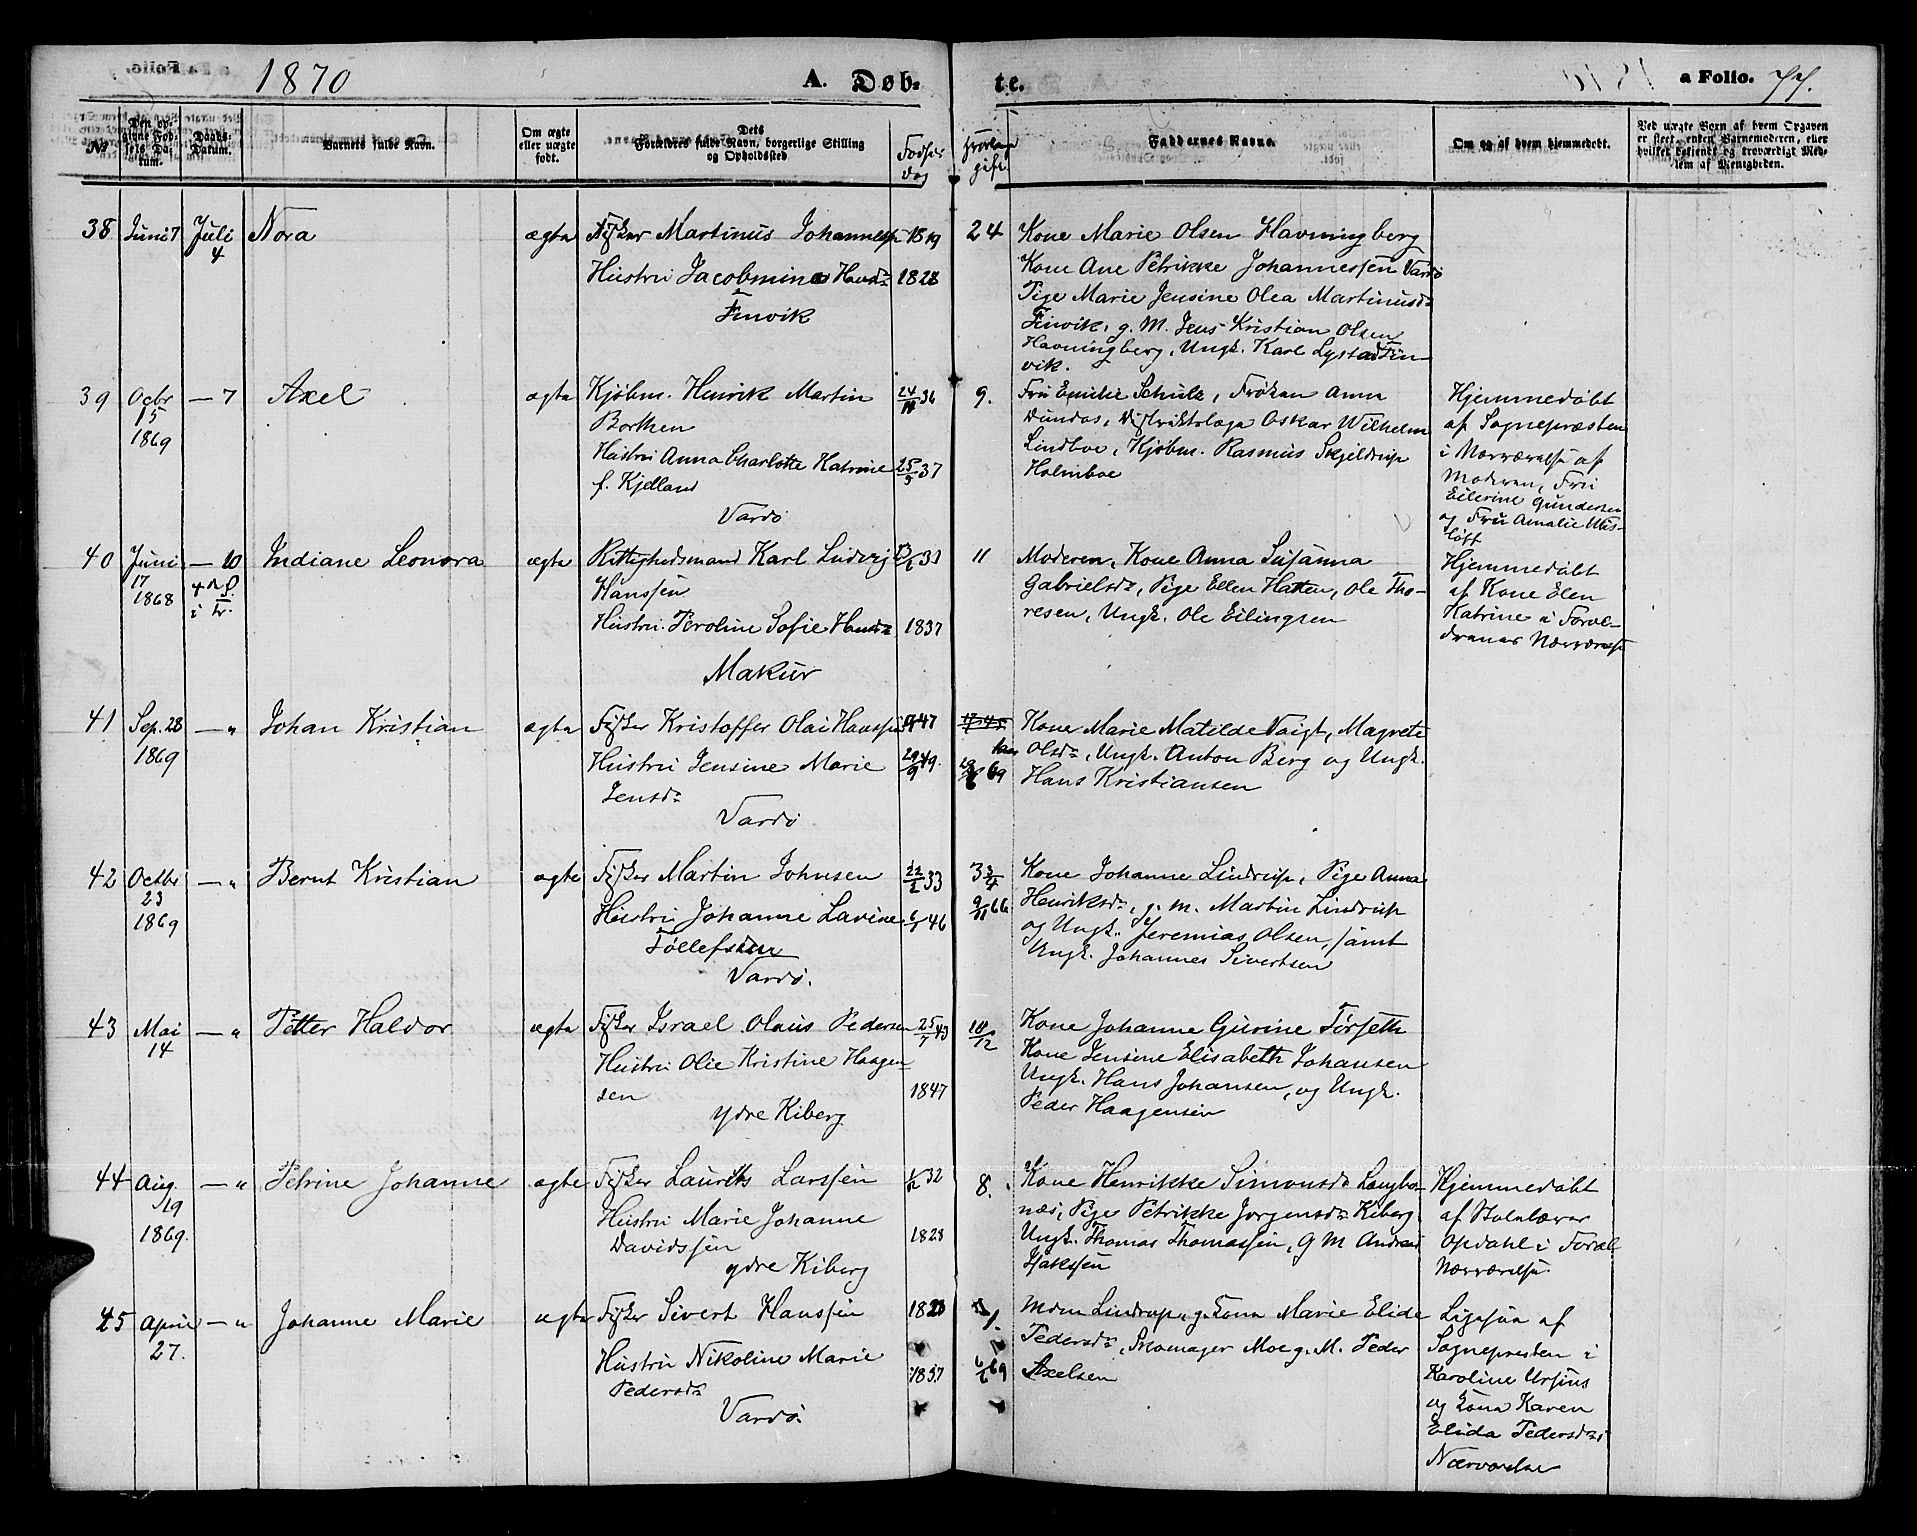 1870
A. Døb-
te.
a Folio. 77.
№
Den op-
givne Fød-
sels Da-
tum.
Daabs-
Datum.
Barnets fulde Navn.
Om ægte
eller uægte
født.
Dets
Forældres fulde Navn, borgerlige Stilling
og Opholdssted
Fødsels
dag
gift
Faddernes Navne.
Om og af hvem hjemmedøbt.
Ved uægte Børn af hvem Opgaven
er skeet, enten Barnemoderen, eller
hvilket bekjendt og troværdigt Med-
lem af Menigheden.
38 Juni 7 Juli 4 Nora ægte Fisker Martinus Johannessen 1819 24
Hustru Jacobmine Hansdr 1828
Finvik
Kone Marie Olsen Havningberg
Kone Ane Petrikke Johannessen Vardø
Pige Marie Jensine Olea Martinusdr
Finvik, g. M. Jens Kristian Olsen
Havningberg, Ungk. Karl Lystad Fin-
vik.
39 Octbr 15 1869 — 7 Axel ægte Kjøbm. Henrik Martin 24/11 36 9.
Borthen
Hustru Anna Charlotte Katrine 25/9 37
f. Kjelland
Vardø
Fru Emilie Schulz, Frøken Anna
Dundas, Distriktslæge Oskar Wilhelm
Lindboe, Kjøbm. Rasmus Skjeldrup
Holmboe
Hjemmedøbt
af Sognepræsten
i Nærværelse af
Moderen, Fru
Eilerine Gundersen
og Fru Amalie Wis-
løff
40 Juni 17 1868 — 10 Indiane Leonora ægte Rettighedsmand Karl Ludvig 33 11
Hanssen
Hustru Peroline Sofie Hansdr 1837
Makur
Moderen, Kone Anna Susanna
Gabrielsdr, Pige Ellen Hatten, Ole Tho-
resen, Ungk. Ole Eilingsen
Hjemmedøbt
af Kone Elen
Katrine i Foræl-
drenes Nærværelse
41 Sep. 28 1869 — " Johan Kristian ægte Fisker Kristoffer Olai Hanssen 47
Hustru Jensine Marie 29/9 49. 69
Jensdr
Vardø
Kone Marie Matilde Voigt, Magrete
Olsdr, Ungk. Anton Berg og Ungk.
Hans Kristiansen
42 Octbr 23 1869 — " Bernt Kristian ægte Fisker Martin Johnsen 22/2 33 3 3/4
Hustru Johanne Lavine 6/1 46 9/11 66
Tollefsen
Vardø.
Kone Johanne Lindrup, Pige Anna
Henriksdr, g. m. Martin Lindrup
og Ungk. Jeremias Olsen, samt
Ungk. Johannes Sivertsen
43 Mai 14 — " Petter Haldor ægte Fisker Israel Olaus Pedersen 25/7 43 10/12
Hustru Olie Kristine Haagen-
sen 1847
ydre Kiberg
Kone Johanne Gurine Forseth
Kone Jensine Elisabeth Johansen
Ungk. Hans Johansen, og Ungk.
Peder Haagensen
44 Aug. 19 1869. — " Petrine Johanne ægte Fisker Laurits Larssen 32 8.
Hustru Marie Johanne 1823
Davidssen
ydre Kiberg
Kone Henrikke Simonsdr Langbu-
næs, Pige Petrikke Jørgensdr Kiberg,
Ungk. Thomas Thomassen, g M Andreas
Isaksen
Hjemmedøbt
af Skolelærer
Opdahl i Foræl.
Nærværelse.
45 April 27. — " Johanne Marie ægte Fisker Sivert Hanssen 1823 1.
Hustru Nikoline Marie 1837 69
Pedersdr
Vardø
Mdm Lindrup, g. Kone Marie Elide
Pedersdr, Skomager Moe g. M. Peder
Axelsen
Ligesaa af
Sognepresten i
Karoline Ursins
og Kone Karen
Elida Pedersdrs
Nærværelse